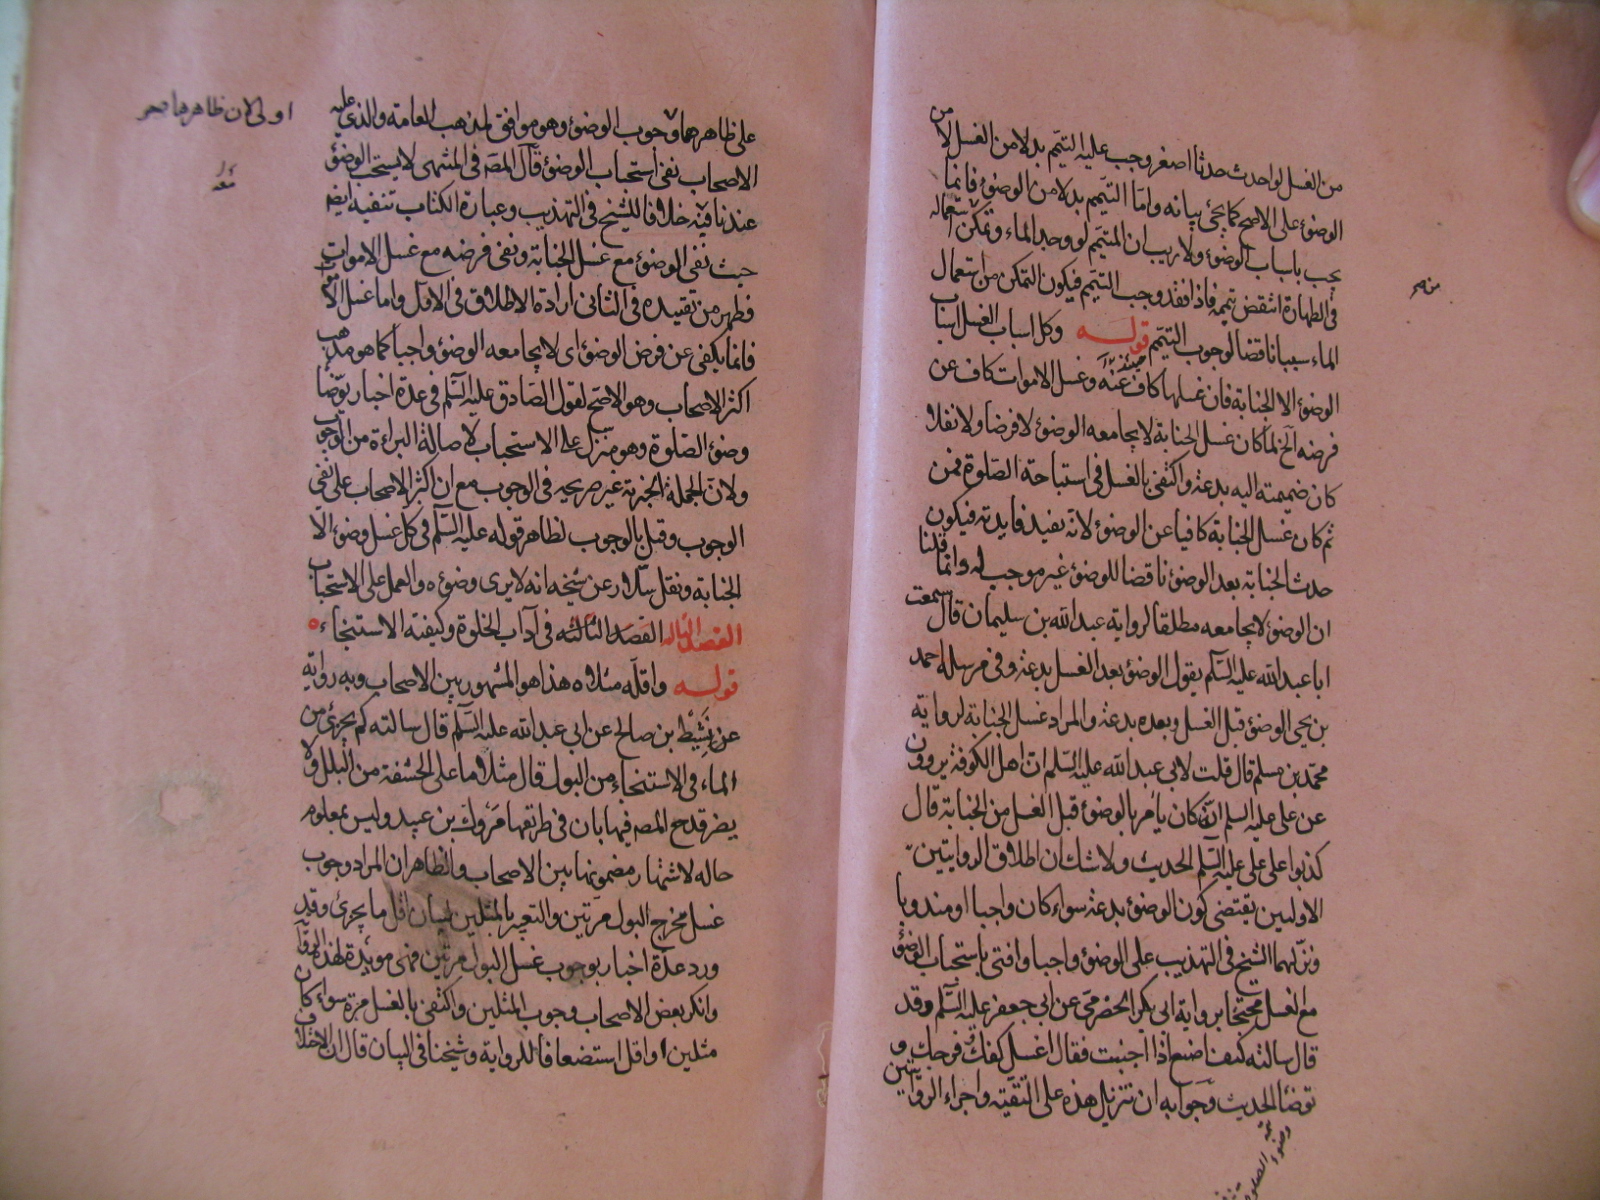 من الغسل لو احدث حدثا اصغر وجب عليه التيمم بدلا من الغسل لا من
الوضوء على الاصح كما يجئ بيانه واما التيمم بدلا من الوضوء فانما
يجب باسباب الوضوء ولا ريب ان المتيمم لو وجد الماء وتمكن استعماله
في الطهارة انتقض تيممه فاذا فقد وجب التيمم فيكون التمكن من استعمال
الماء سببا ناقضا لوجوب التيمم قوله وكل اسباب الغسل اسباب
الوضوء الا الجنابة فان غسلها كاف عنه وغسل الاموات كاف عن
فرضه الخ لما كان غسل الجنابة لا يجامعه الوضوء لا فرضا ولا نفلا
كان ضميمته اليه بدعة واكتفى بالغسل في استباحة الصلوة فمن
ثم كان غسل الجنابة كافيا عن الوضوء لانه يفيد فايدته فيكون
حدث الجنابة بعد الوضوء ناقضا للوضوء غير موجب له وانما قلنا
ان الوضوء لا يجامعه مطلقا لرواية عبد الله بن سليمان قال سمعت
ابا عبد الله عليه السلم يقول الوضوء بعد الغسل بدعة وفي مرسلة احمد
بن يحيى الوضوء قبل الغسل وبعده بدعة والمراد غسل الجنابة لرواية
محمد بن مسلم قال قلت لابي عبد الله عليه السلم ان اهل الكوفة يروون
عن علي عليه السلم انه كان يأمر بالوضوء قبل الغسل من الجنابة قال
كذبوا على علي عليه السلم الحديث ولا شك ان اطلاق الروايتين
الاوليين يقتضي كون الوضوء بدعة سواء كان واجبا او مندوبا
ونزلهما الشيخ في التهذيب على الوضوء واجبا وافتى باستحباب الوضوء
مع الغسل محتجا برواية ابي بكر الحضرمي عن ابي جعفر عليه السلم وقد
قال سالته كيف اصنع اذا اجنبت فقال اغسل كفك وفرجك و
توضأ الحديث وجوابه ان تنزيل هذه على التقية واجراء الروايتين
وضوء الصلوة
من صح
على ظاهرهما وجوب الوضوء وهو موافق لمذهب العامة والذي عليه
الاصحاب نفي استحباب الوضوء قال المصه في المنتهى لا يستحب الوضوء
عندنا فيه خلافا للشيخ في التهذيب وعبارة الكتاب تنفيه ايضا
حيث نفى الوضوء مع غسل الجنابة ونفى فرضه مع غسل الاموات
فظهر من تقييده في الثاني ارادة الاطلاق في الاول واما غسل الاموات
فانما يكفي عن فرض الوضوء اي لا يجامعه الوضوء واجبا كما هو مذهب
اكثر الاصحاب وهو الاصح لقول الصادق عليه السلم في عدة اخبار توضأ
وضوء الصلوة وهو منزل على الاستحباب لاصالة البراءة من الوجوب
ولان الجملة الخبرية غير صريحه في الوجوب مع ان اكثر الاصحاب على نفي
الوجوب وقيل بالوجوب لظاهر قوله عليه السلم في كل غسل وضوء الا
الجنابة ونقل سلار عن شيخه انه لا يرى وضوءه والعمل على الاستحباب
الفصد الثالثه في آداب الخلوة وكيفية الاستنجاء
قوله واقله مثلاه هذا هو المشهور بين الاصحاب وبه رواية
عن نشيط بن صالح عن ابي عبد الله عليه السلم قال سالته كم يجزئ من
الماء في الاستنجاء من البول قال مثلا ما على الحشفة من البلل ولا
يضر قدح المصه فيها بان في طريقها مروك بن عبيد وليس بمعلوم
حاله لاشتهار مضمونها بين الاصحاب والظاهر ان المراد وجوب
غسل مخرج البول مرتين والتعبير بالمثلين لبيان اقل ما يجزئ وقد
ورد عدة اخبار بوجوب غسل البول مرتين فهي مويدة لهذه الرواية
وانكر بعض الاصحاب وجوب المثلين واكتفى بالغسل مرة سواء كان
مثلين او اقل استضعافا للرواية وشيخنا في البيان قال ان الاختلاف
اولى لان ظاهرها صح